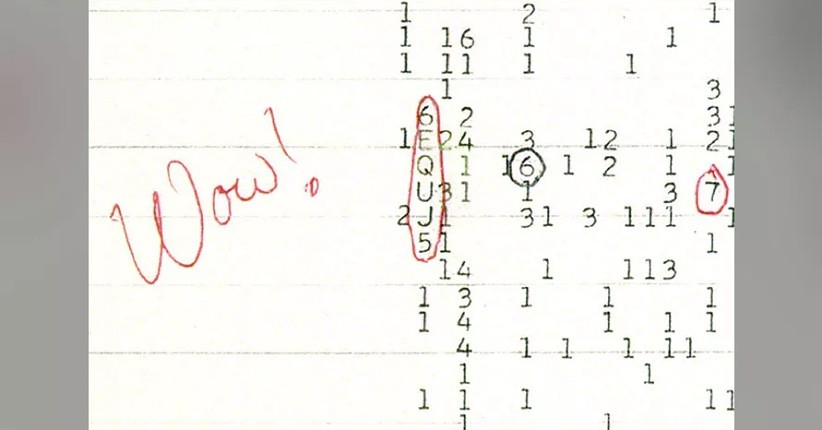 1 2 1
1 16 1 1
1 11 1 1
1 3
6 2 31
1E24 3 12 1 21
Wow!
Q 1 16 1 2 1 1
U31 1 3 7
2J1 31 3 111 1
51 1
14 1 113
1 3 1 1 1
1 4 1 1 1
4 1 1 1 11
1 1
1 1 1 11
1 1